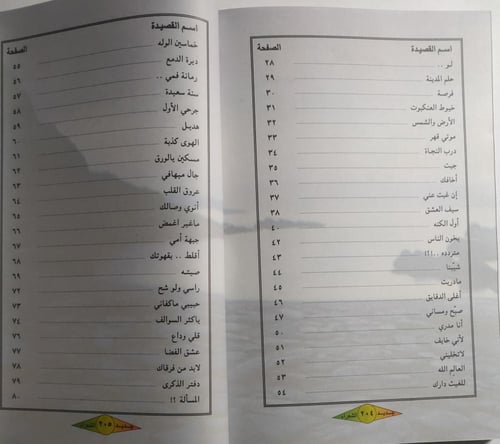 اسم القصيدة الصفحة
لو .. ٢٨
حلم المدينة ٢٩
فرصة ٣٠
خيوط العنكبوت ٣١
الأرض والشمس ٣٢
موتي قهر ٣٣
درب النجاة ٣٤
جيت ٣٥
أخافك ٣٦
إن غبت عني ٣٧
سيف العشق ٣٨
أول الكنه ٤٠
يخون الناس ٤٢
مترددة ..!؟ ٤٣
شيّبنا ٤٤
مادريت ٤٥
أغلى الدقايق ٤٦
صبّح ومساني ٤٧
أنا مدري ٥٠
لأني خايف ٥١
لاتخليني ٥٢
العالم الله ٥٣
للغيث دارك ٥٤
جديد ٢٠٤ الشعراء
اسم القصيدة الصفحة
خماسين الوله ٥٥
ديرة الدمع ٥٦
رمانة فمي .. ٥٧
سنة سعيدة ٥٨
جرحي الأول ٥٩
هديل ٦٠
الهوى كذبة ٦١
مسكين يالورق ٦٢
جال ميهافي ٦٣
عروق القلب ٦٤
أنوي وصالك ٦٥
ماغير اغمض ٦٦
جبهة أمي ٦٧
أقلط .. بقهوتك ٦٨
صيته ٦٩
راسي ولو شح ٧٢
حبيبي ماكفاني ٧٣
ياكثر السوالف ٧٤
قلي وداع ٧٦
عشق الفضا ٧٧
لابد من فرقاك ٧٨
دفتر الذكرى ٧٩
المسألة ؟! ٨٠
جديد ٢٠٥